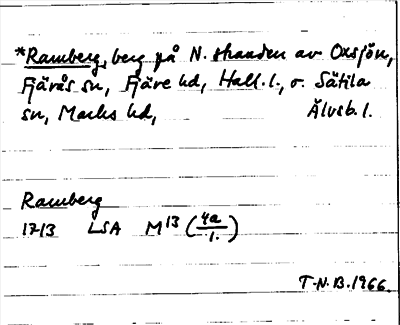 *Ramberg, berg på N. stranden av Oxsjön,
Fjärås sn, Fjäre hd, Hall. l., o. Sätila
sn, Marks hd, Älvsb. l.
Ramberg
1713 LSA M13 (4a/1.)
T.N.B. 1966.